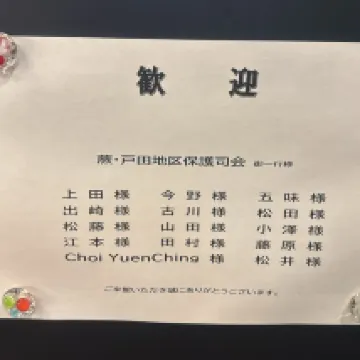 歓 迎
蕨・戸田地区保護司会 御一行様
上田 様 今野 様 五味 様
出崎 様 古川 様 松田 様
松藤 様 山田 様 小澤 様
江本 様 田村 様 藤原 様
Choi YuenChing 様 松井 様
ご来館いただき誠にありがとうございます。